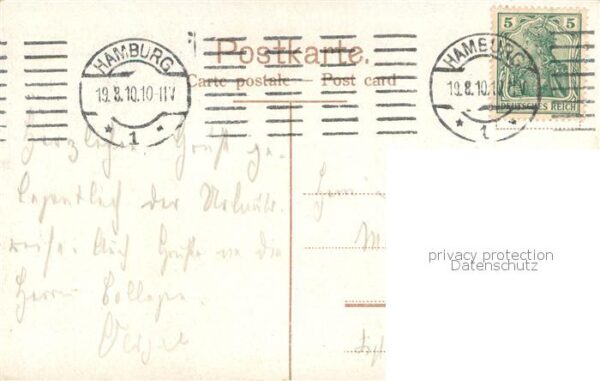 5 5
HAMBURG
19.8.10.10-11V
* 1 *
Postkarte.
Carte postale — Post card
HAMBURG
19.8.10.1 V
* 1 *
DEUTSCHES REICH
Herzlichen Gruß ge-
legentlich der Urlaubs-
reise. Auch Grüße an die
Herren Collegen.
privacy protection
Datenschutz